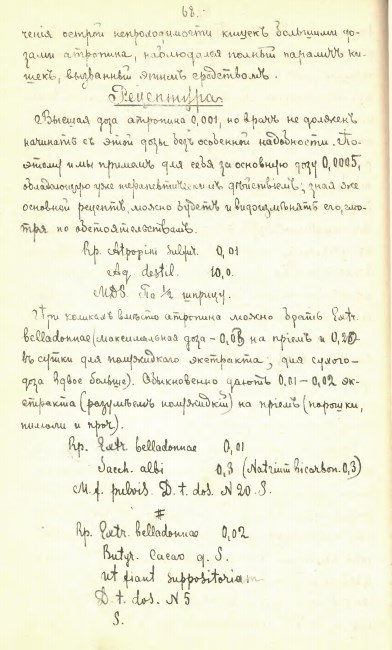 68.-
ченія острой непроходимости кишекъ большими до-
зами атропина, наблюдался полный параличъ ки-
шекъ, вызванный этимъ средствомъ.
Рецептура.
Высшая доза атропина 0,001, но врачъ не долженъ
начинать съ этой дозы безъ особенной надобности. По-
этому и мы примемъ для себя за основную дозу 0,0005,
обладающую уже терапевтическимъ дѣйствіемъ; зная же
основной рецептъ, можно будетъ и видоизмѣнять его, смо-
тря по обстоятельствамъ.
Rp. Atropini Sulfur. 0,01
Aq. destil. 10,0.
MDS. По ½ шприцу.
При коликахъ вмѣсто атропина можно брать Extr.
belladonnae (максимальная доза - на пріемъ и
въ сутки для полужидкаго экстракта; для сухого-
доза вдвое больше). Обыкновенно даютъ 0,01-0,02 эк-
стракта (разумѣемъ полужидкій) на пріемъ (порошки,
пилюли и проч).
Rp. Extr. belladonnae 0,01
Sacch. albi 0,3 (Natrium bicarbon. 0,3)
M. f. pulvis. D. t. dos. N 20. S.
#
Rp. Extr. belladonnae 0,02
Butyr. Cacao q. S.
ut fiant suppositoriam
D. t. dos. N 5
S.